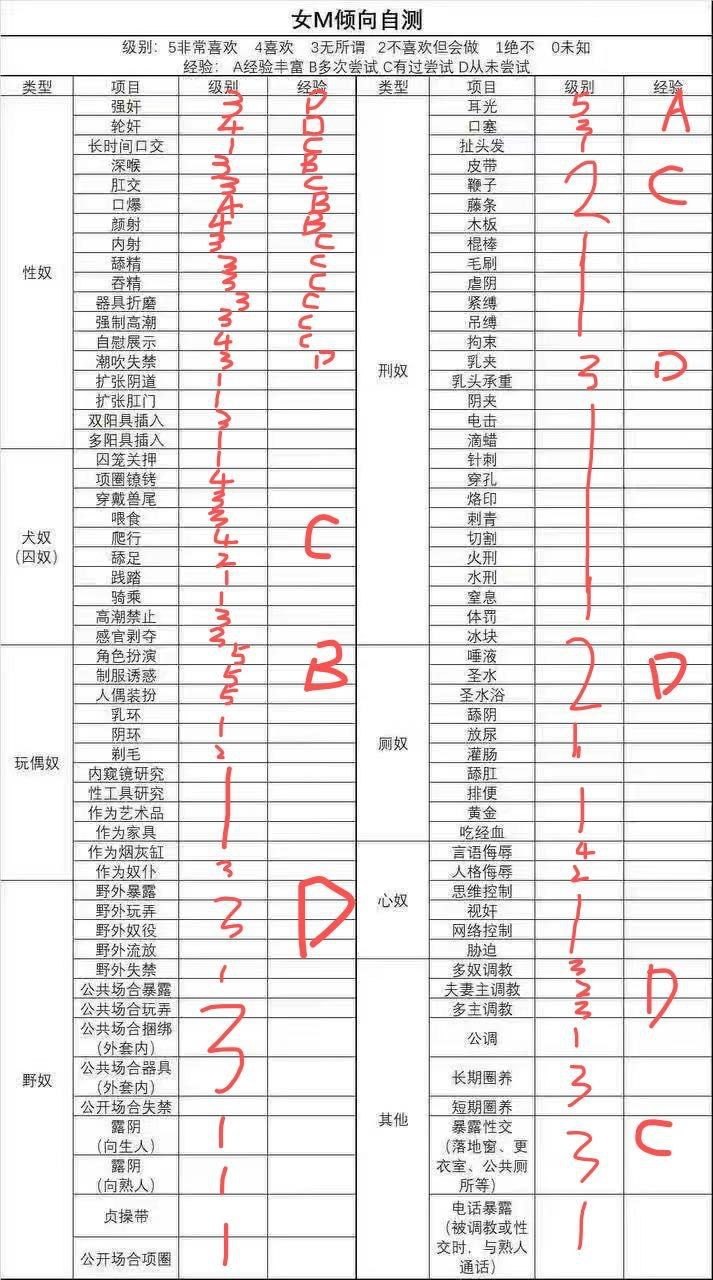 女M倾向自测
级别：5非常喜欢 4喜欢 3无所谓 2不喜欢但会做 1绝不 0未知
经验： A经验丰富 B多次尝试 C有过尝试 D从未尝试
类型 项目 级别 经验
性奴
强奸 3 D
轮奸 4 D
长时间口交 1 C
深喉 3 B
肛交 3 C
口爆 4 B
颜射 4 B
内射 3 C
舔精 3 C
吞精 3 C
器具折磨 3 C
强制高潮 3 C
自慰展示 4 C
潮吹失禁 3 D
扩张阴道 1
扩张肛门 1
双阳具插入 3
多阳具插入 1
犬奴
（囚奴）
囚笼关押 1
项圈镣铐 4
穿戴兽尾 3
喂食 3 C
爬行 4
舔足 2
践踏 1
骑乘 1
高潮禁止 3
感官剥夺 3
玩偶奴
角色扮演 5
制服诱惑 5 B
人偶装扮 5
乳环
阴环 1
剃毛 2
内窥镜研究
性工具研究 1
作为艺术品
作为家具
作为烟灰缸
作为奴仆 3
野奴
野外暴露
野外玩弄 3 D
野外奴役
野外流放
野外失禁 1
公共场合暴露
公共场合玩弄
公共场合捆绑
（外套内） 3
公共场合器具
（外套内）
公开场合失禁
露阴 1
（向生人）
露阴 1
（向熟人）
贞操带
公开场合项圈 1
类型 项目 级别 经验
刑奴
耳光 5 A
口塞 3
扯头发 1
皮带
鞭子 2 C
藤条
木板
棍棒
毛刷
虐阴 1
紧缚
吊缚
拘束
乳夹 3 D
乳头承重
阴夹
电击
滴蜡
针刺
穿孔 1
烙印
刺青
切割
火刑
水刑
窒息 1
体罚
冰块
厕奴
唾液
圣水 2 D
圣水浴
舔阴
放尿 1
灌肠
舔肛
排便
黄金 1
吃经血
心奴
言语侮辱 4
人格侮辱 2
思维控制
视奸 1
网络控制
胁迫
其他
多奴调教 3
夫妻主调教 2 D
多主调教 3
公调 1
长期圈养 3
短期圈养
暴露性交 C
（落地窗、更
衣室、公共厕 3
所等）
电话暴露
（被调教或性 1
交时，与熟人
通话）